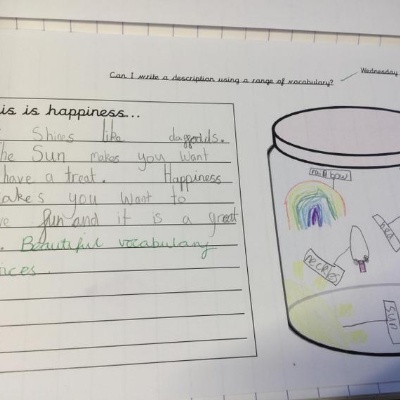 Can I write a description using a range of vocabulary?
Wednesday
is is happiness...
Shines like
he Sun makes you want
have a treat. Happiness
akes you want to
ve fun and it is a great
Beautiful vocabulary
ices
rainbow
sun